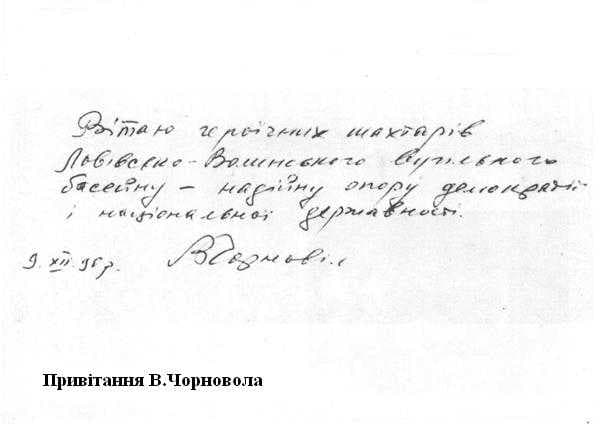 Вітаю героїчних шахтарів
Львівсько-Волинського вугільного
басейну – надійну опору демократії
і національної державності.
9.XII.95р. ВЧорновіл
Привітання В.Чорновола